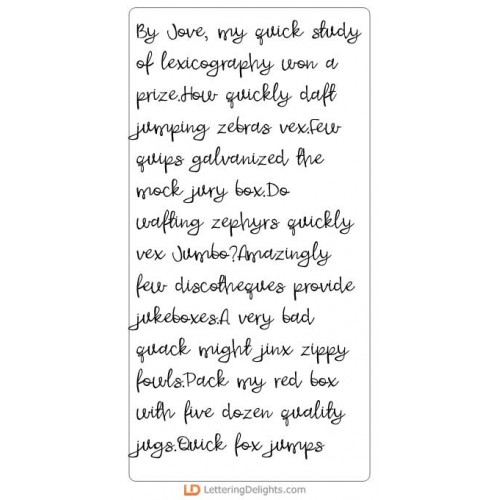 By Jove, my quick study
of lexicography won a
prize.How quickly daft
jumping zebras vex.Few
quips galvanized the
mock jury box.Do
wafting zephyrs quickly
vex Jumbo?Amazingly
few discotheques provide
jukeboxes.A very bad
quack might jinx zippy
fowls.Pack my red box
with five dozen quality
jugs.Quick fox jumps
LD LetteringDelights.com